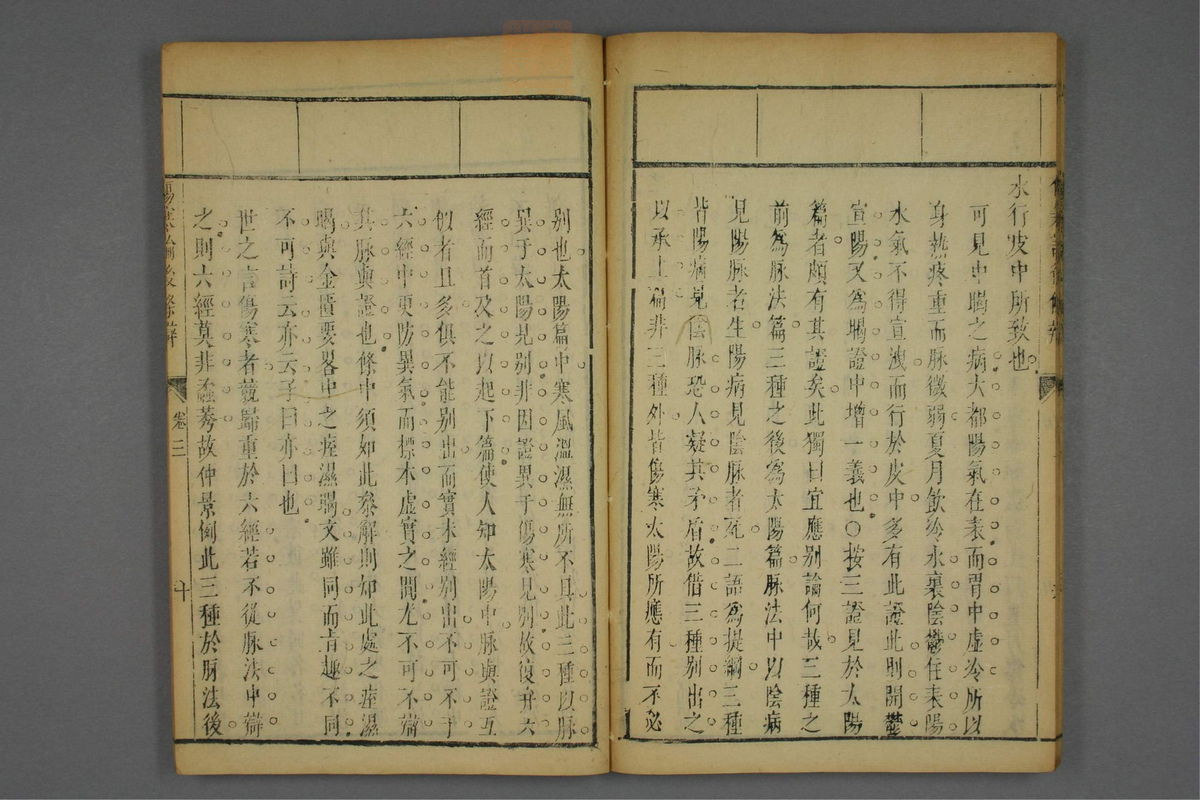 水行皮中所致也
可見中暍之病大都陽氣在表而胃中虛冷所以
身熱疼重而脉微弱夏月飲冷水裏陰鬱住表陽
水氣不得宣洩而行於皮中多有此證此則開鬱
宣陽又為暍證中增一義也○按三證見於太陽
篇者頗有其證矣此獨曰宜應别論何故三種之
前為脉法篇三種之後為太陽篇脉法中以陰病
見陽脉者生陽病見陰脉者死二語為提綱三種
皆陽病見陰脉恐人疑其矛盾故借三種别出之
以承上篇非三種外皆傷寒太陽所應有而不必
别也太陽篇中寒風溫濕無所不具此三種以脉
異于太陽見别非因證異于傷寒見别故復弁六
經而首及之以起下篇使人知太陽中脉與證互
似者且多俱不能别出而實未經别出不可不于
六經中更防異氣而標本虛實之間尤不可不辯
其脉與證也條中須如此叅解則知此處之痓濕
暍與金匱要畧中之痓濕暍文雖同而肯趣不同
不可詩云亦云子曰亦曰也
世之言傷寒者競歸重於六經若不從脉法中辯
之則六經莫非蟊莠故仲景例此三種於脉法後
傷寒論後條辯
卷三
十